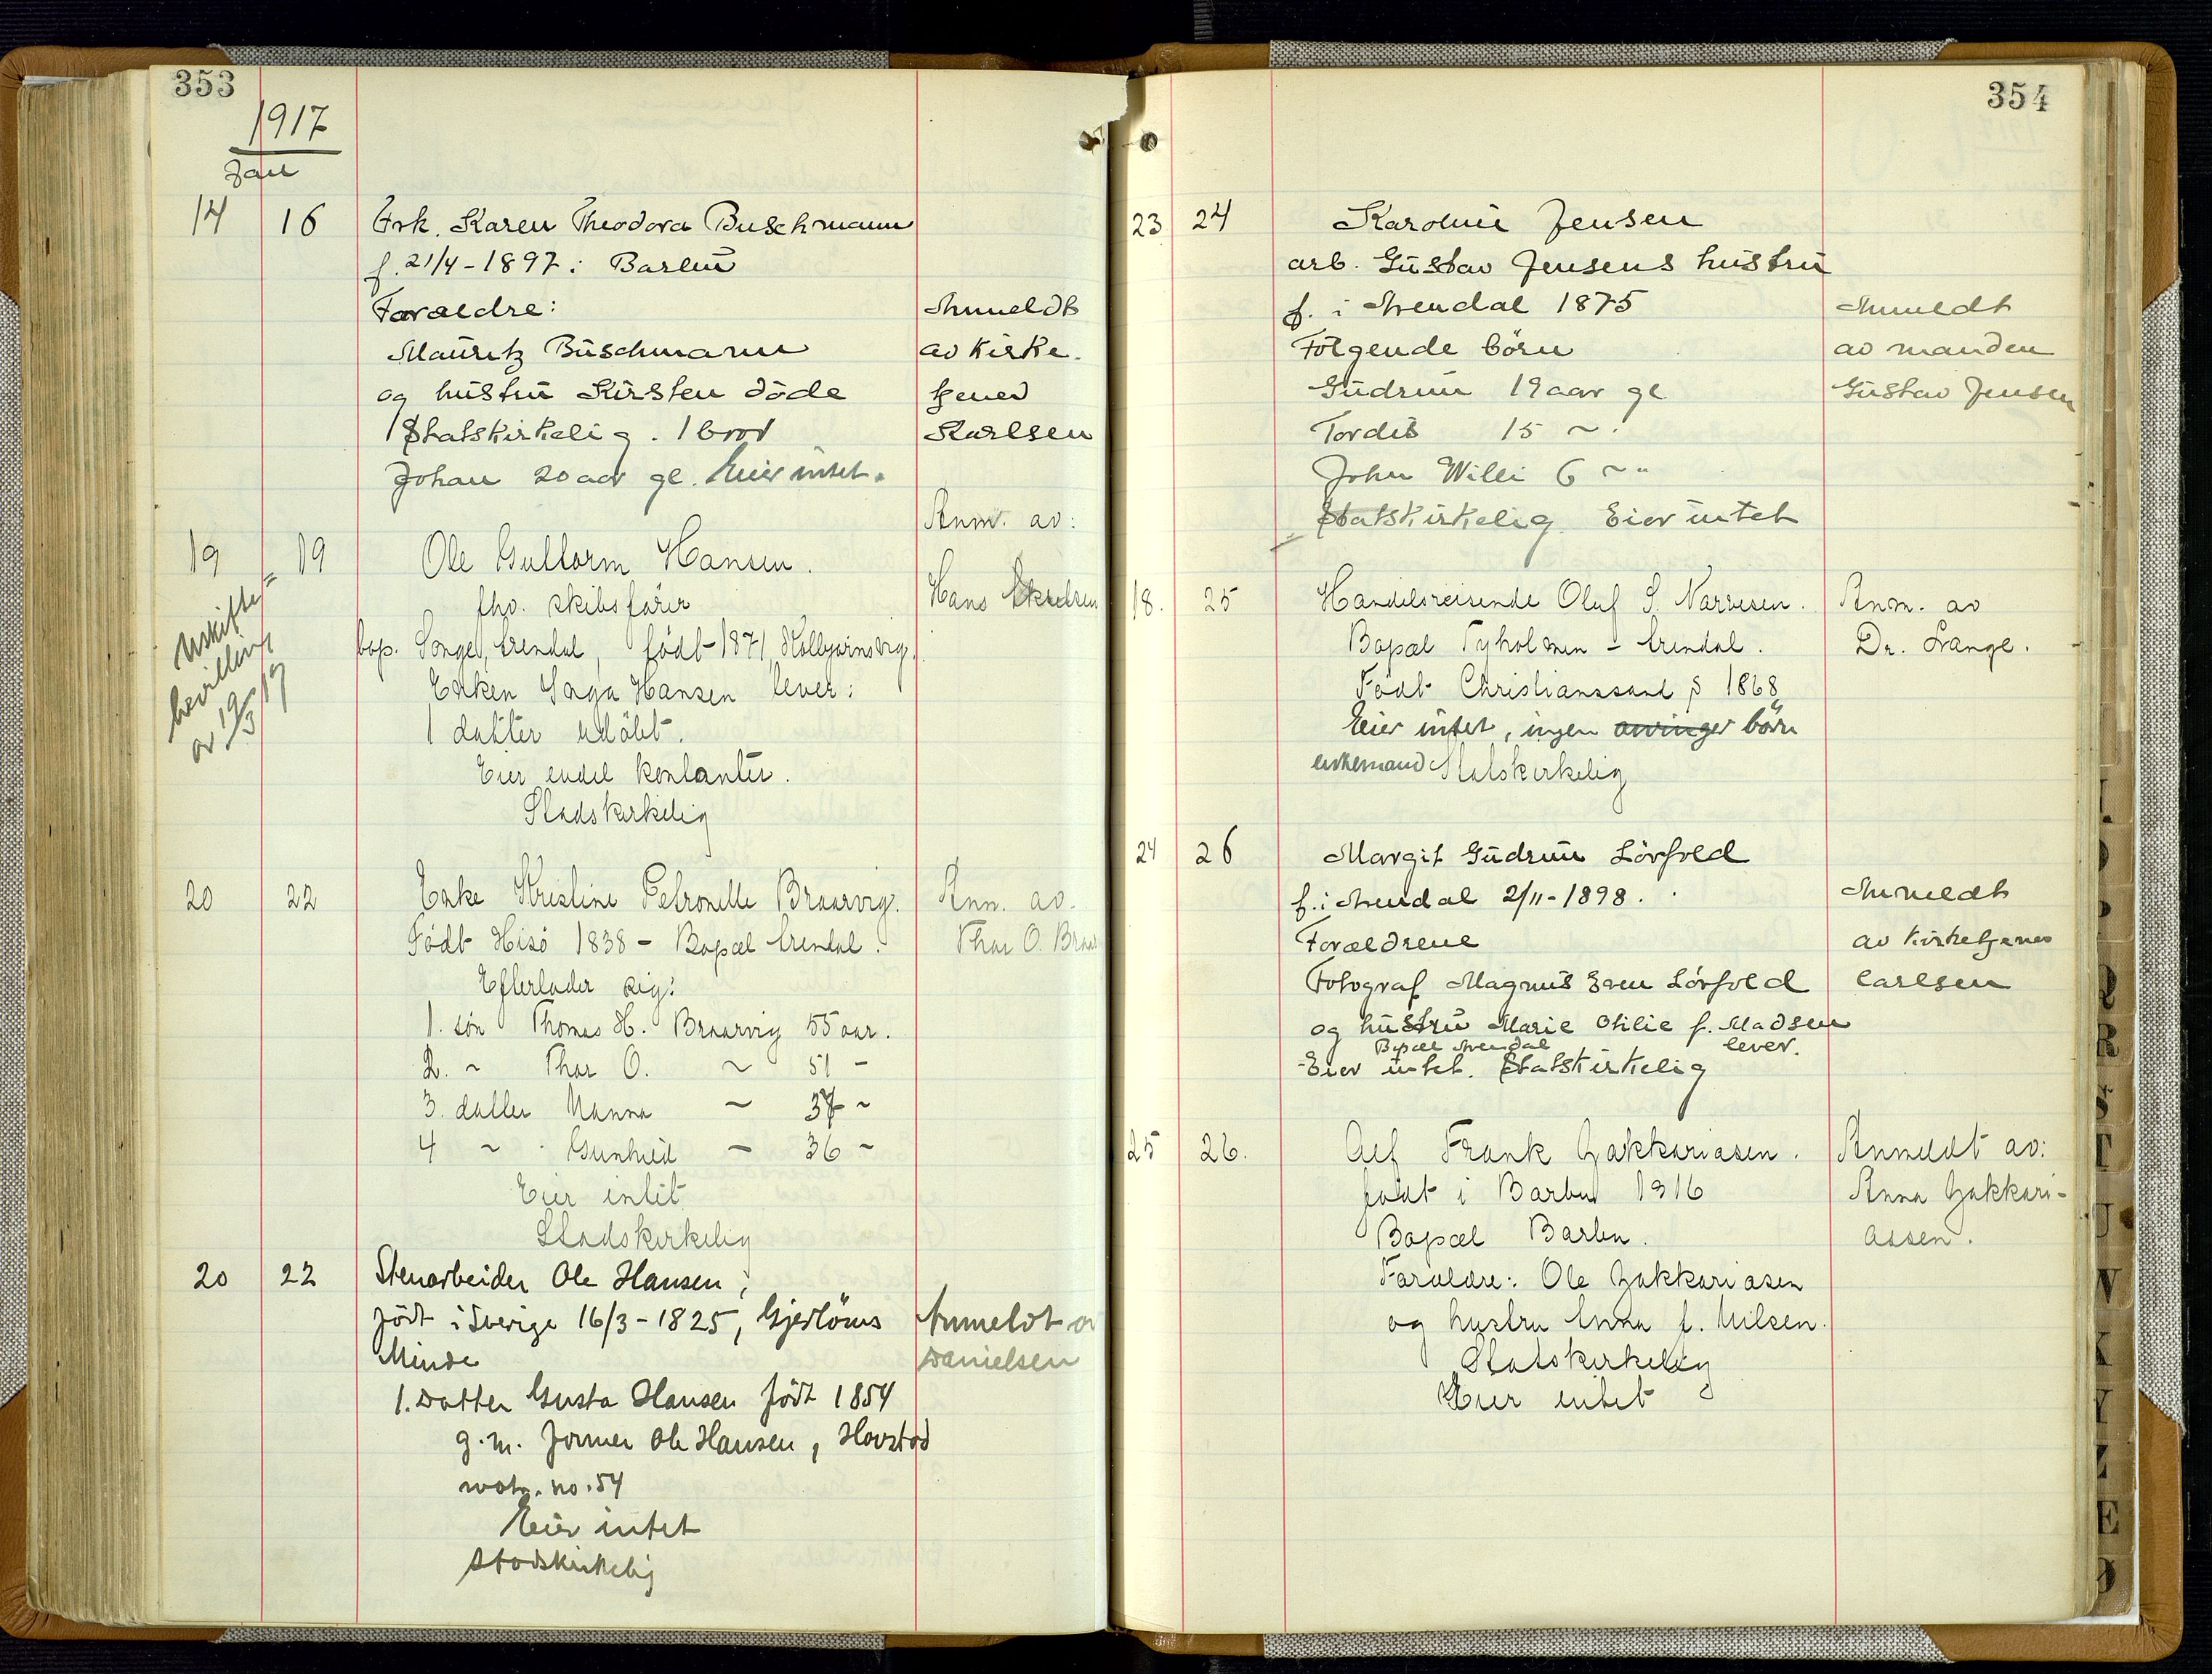 353
1917
Jan
14 16 Frk. Karen Theodora Buschmann
f. 21/4-1897 i Barbu
Forældre:
Mauritz Buschmann
og hustru Kirsten döde
Statskirkelig. 1 bror
Johan 20 aar gl. Eier intet.
Anmeldt
av Kirke-
tjener
Karlsen
19 19 Ole Guttorm Hansen.
fhv. skibsförer
bop. Songe, Arendal, född 1871, Kolbjørnsvig.
Enken Inga Hansen lever:
1 datter udöbt.
Eier endel kontanter.
Stadskirkelig
Anm. av:
Hans
Uskifte-
bevilling
av 19/3 17
20 22 Enke Kristine Petronelle Braarvig.
Födt Hisö 1838 - Bopæl Arendal.
Efterlader sig:
1. sön Thomas H. Braarvig 55 aar.
2. ~ Thor O. ~ 51 -
3. datter Nanna ~ 37 ~
4 ~ Gunhild - 36 ~
Eier intet
Stadskirkelig
Anm. av.
Thor O. Braar
20 22 Stenarbeider Ole Hansen,
född i Sverige 16/3-1825,
Minde
1. datter Gusta Hansen född 1854
g.m. former Ole Hansen,
matr. no. 54
Eier intet
stadskirkelig
Anmeldt av
Danielsen
354
23 24 Karoline Jensen
arb. Gustav Jensens hustru
f. i Arendal 1875
Fölgende börn
Gudrun 19 aar gl
Tordis 15 ~ "
John Willi 6 ~ "
Statskirkelig Eier intet
Anmeldt
av manden
Gustav Jensen
18. 25 Handelsreisende Oluf S. Narvesen.
Bopæl Tyholmen - Arendal.
Födt Christianssand S 1868
Eier intet, ingen arvinger börn
enkemand Statskirkelig
Anm. av
Dr. Lange.
24 26 Margit Gudrun Lövfold
f. i Arendal 2/11-1898.
Forældrene
Fotograf Magnus Lövfold
og hustru Marie Otilie f. Madsen
Bopæl Arendal lever.
Eier intet. Statskirkelig
Anmeldt
av Kirketjener
Carlsen
25 26. Alf Frank Zakkariasen.
född i Barbu 1916
Bopæl Barbu.
Forældre: Ole Zakkariasen
og hustru Anna f. Nilsen.
Statskirkelig
Eier intet
Anmeldt av:
Anna Zakkari-
assen.